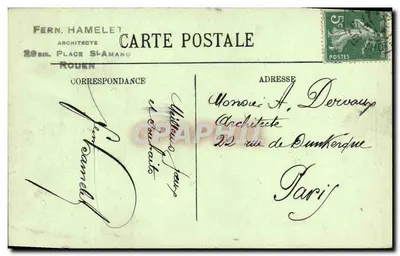 FERN. HAMELET
ARCHITECTE
29 BIS. PLACE ST-AMAND
ROUEN
CARTE POSTALE
5c
POSTES
CORRESPONDANCE
ADRESSE
et souhaits
Fern Hamelet
Monsieur A. Dervaux
Architecte
22 rue de Dunkerque
Paris